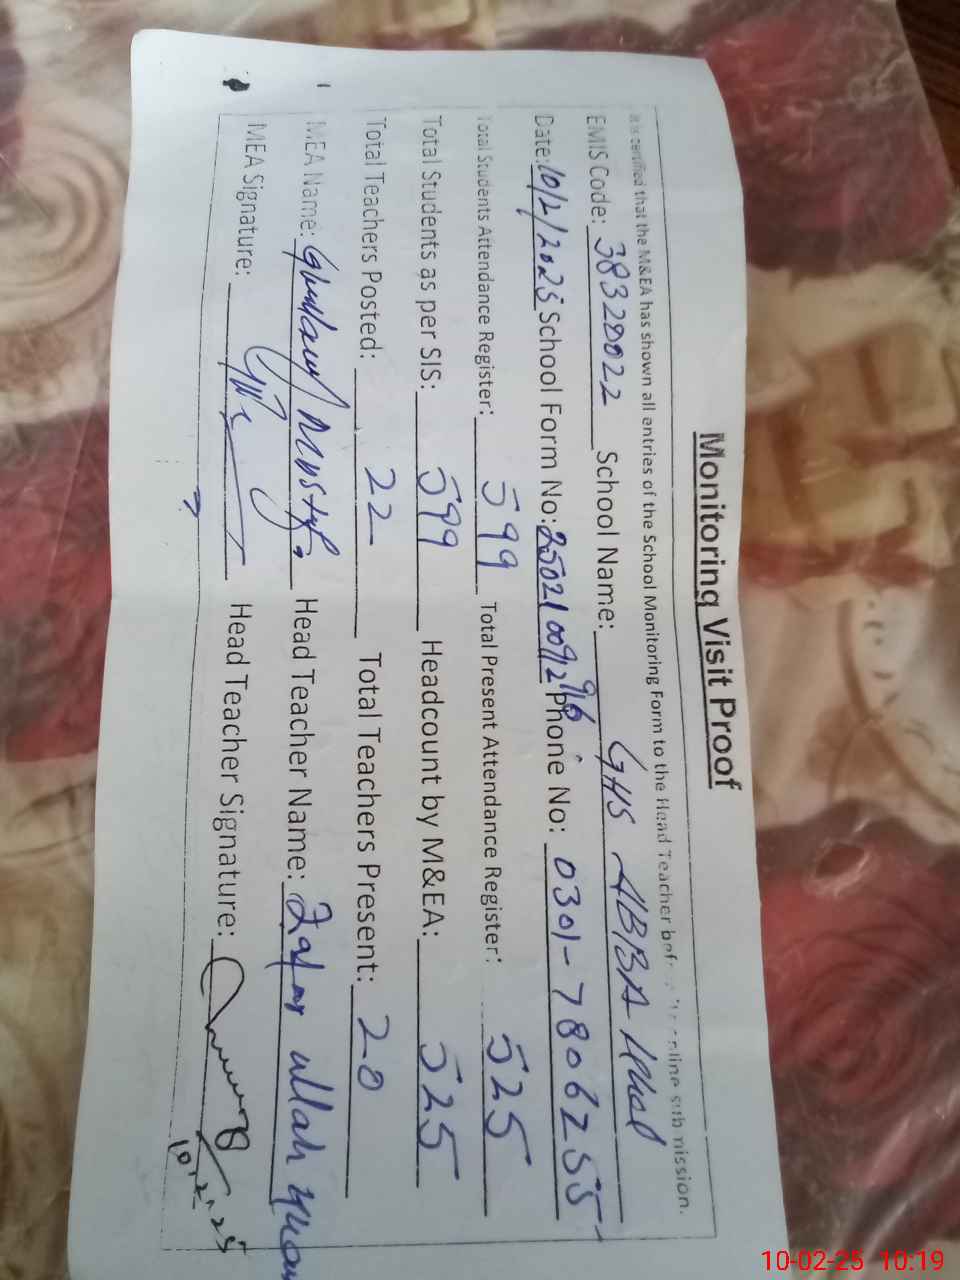 Monitoring Visit Proof
It is certified that the M&EA has shown all entries of the School Monitoring Form to the Head Teacher before online submission.
EMIS Code: 38320022 School Name: GHS ABBA
Date: 10/2/2025 School Form No: Phone No: 0301-7806255
Total Students Attendance Register: 599 Total Present Attendance Register: 525
Total Students as per SIS: 599 Headcount by M&EA: 525
Total Teachers Posted: 22 Total Teachers Present: 20
MEA Name: Ghulam Mustafa Head Teacher Name: Zafar ullah
MEA Signature: Head Teacher Signature:
10.2.25
10-02-25 10:19